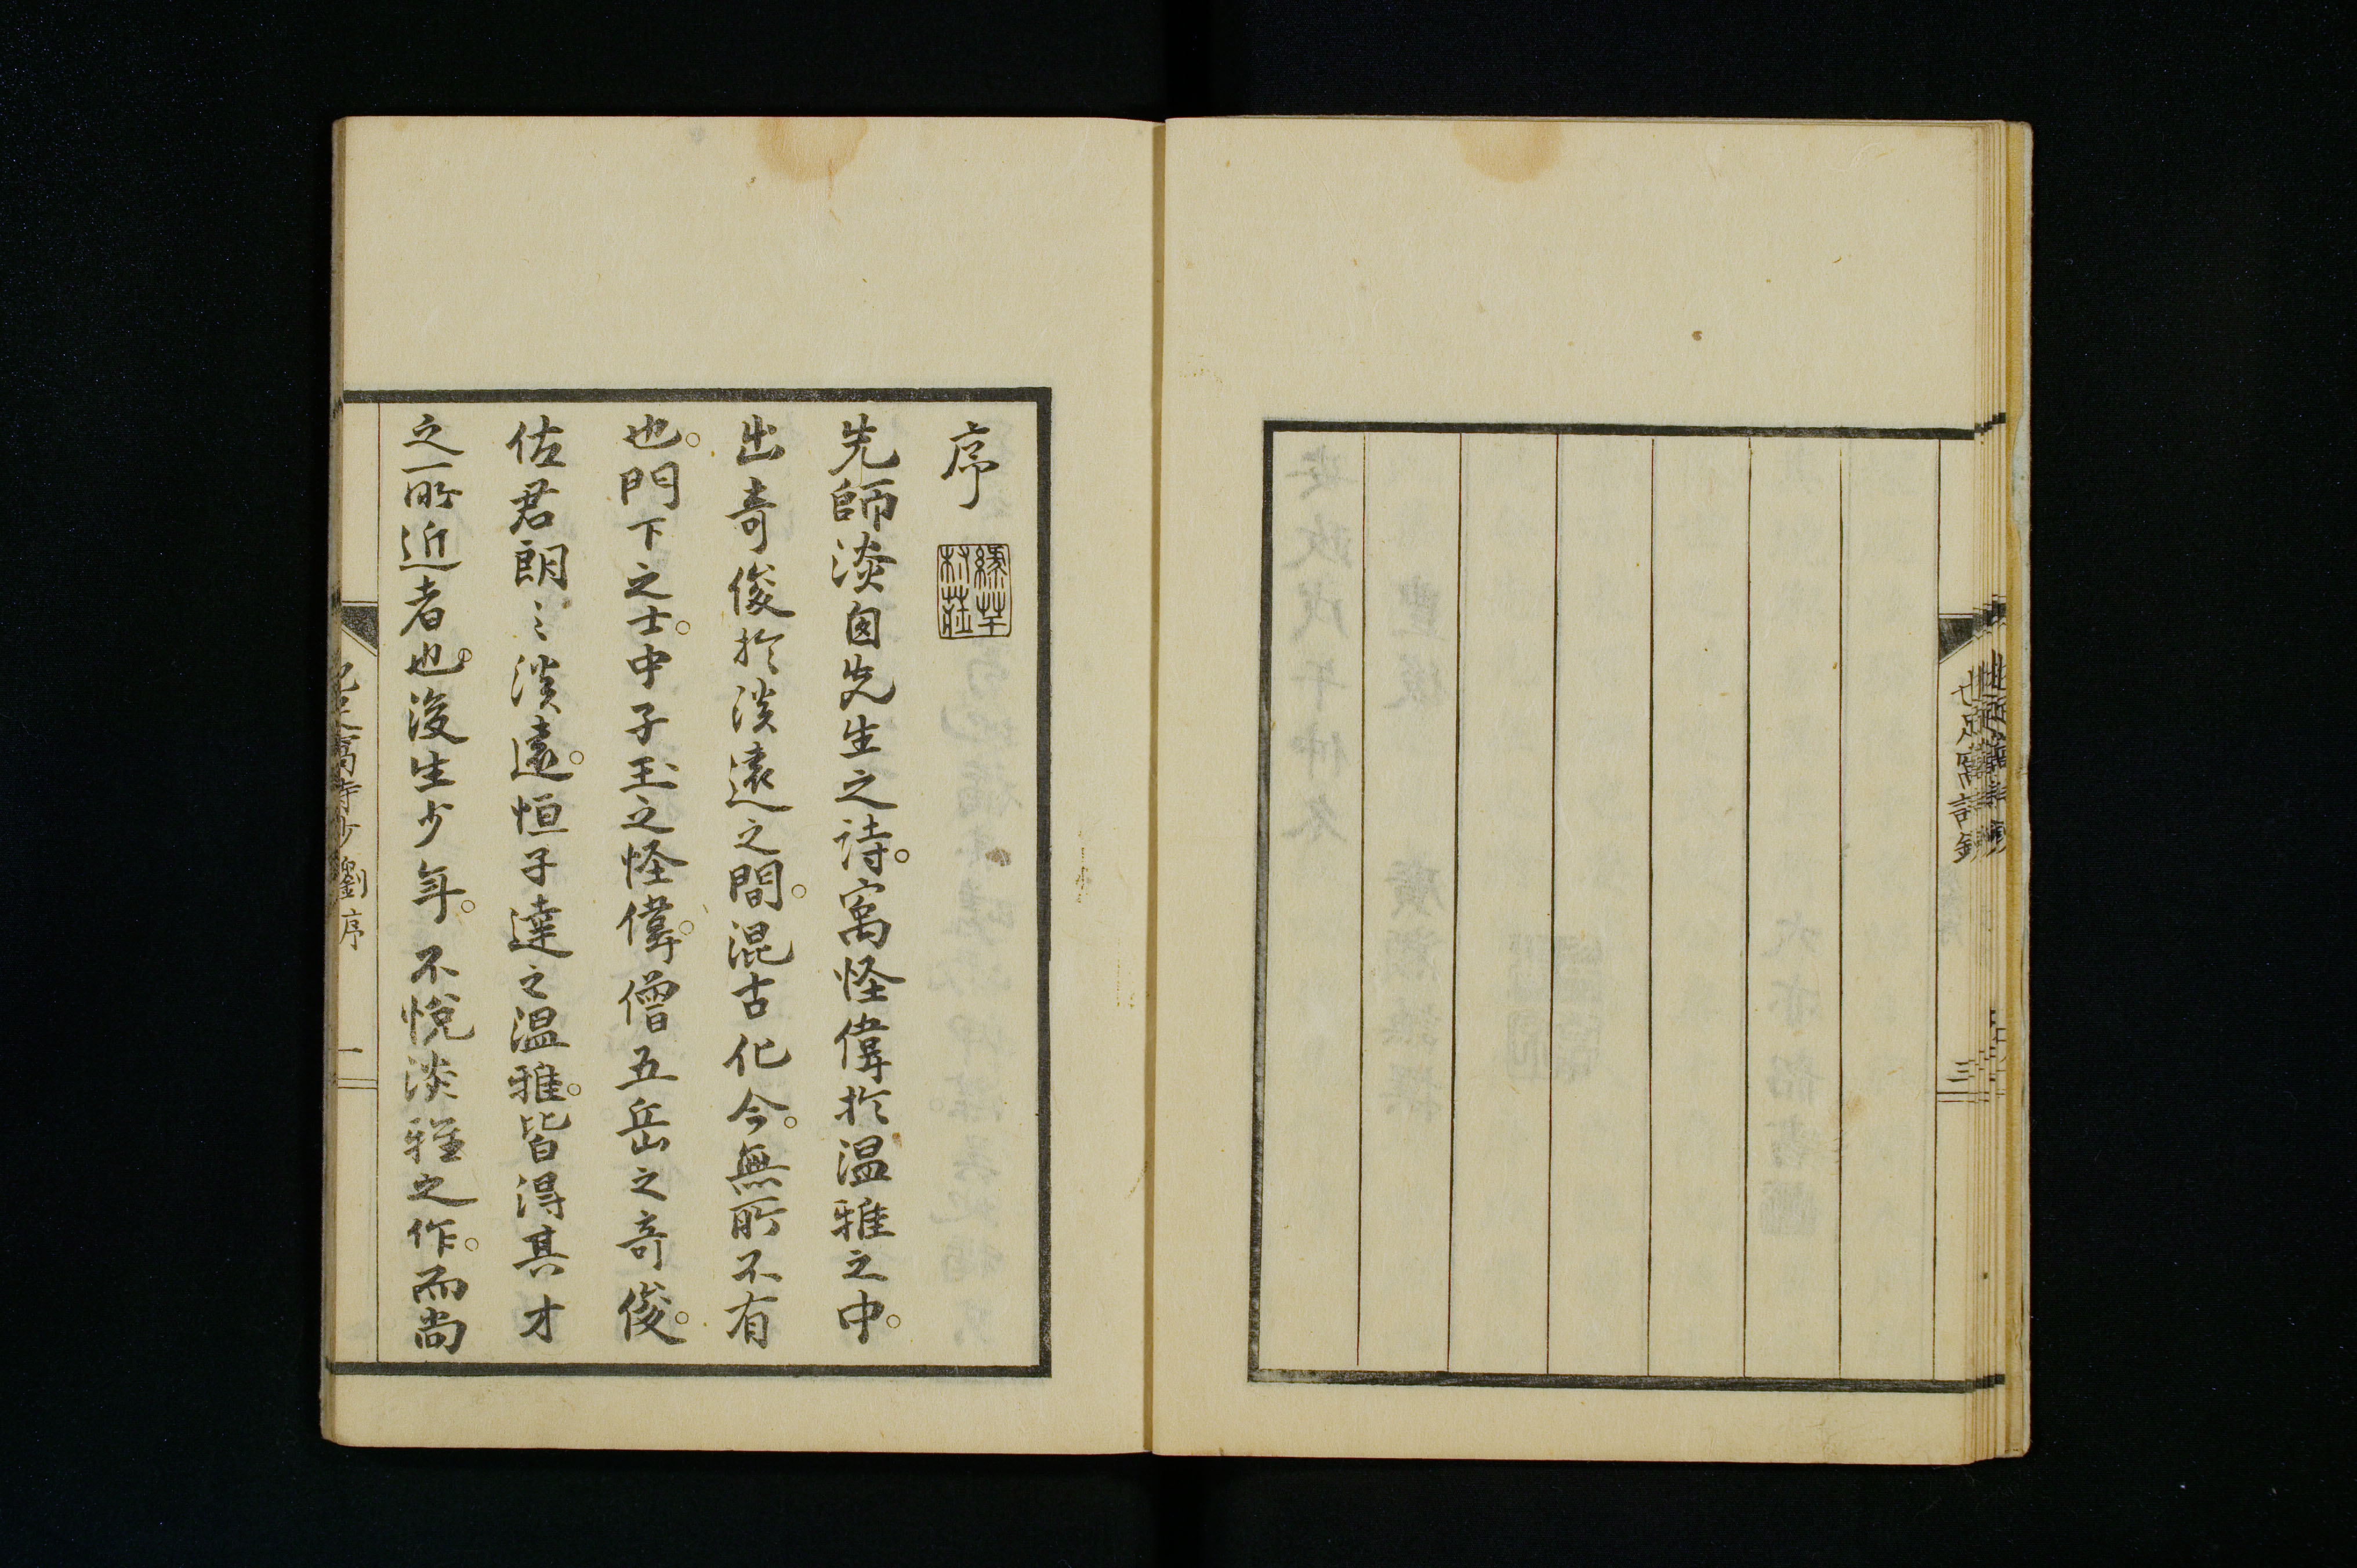 序
先師淡囱先生之詩。寓怪偉於温雅之中。
出奇俊於淡遠之間。混古化今。無所不有
也。門下之士。中子玉之怪偉。僧五岳之奇俊。
佐君朗〻淡遠。恒子達之温雅。皆得其才
之所近者也。後生少年。不悅淡雅之作。而尚
劉序
一
三